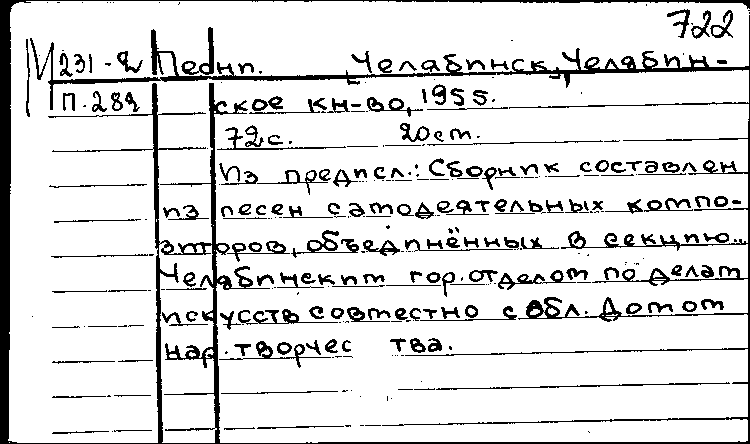 722
М 231-2 Песни. [Челябинск], Челябин-
П.282 ское кн-во, 1955.
72с. 20см.
Из предисл.: Сборник составлен
из песен самодеятельных компо-
зиторов, объединённых в секцию...
Челябинским гор.отделом по делам
искусств совместно с Обл. Домом
нар.творчес тва.